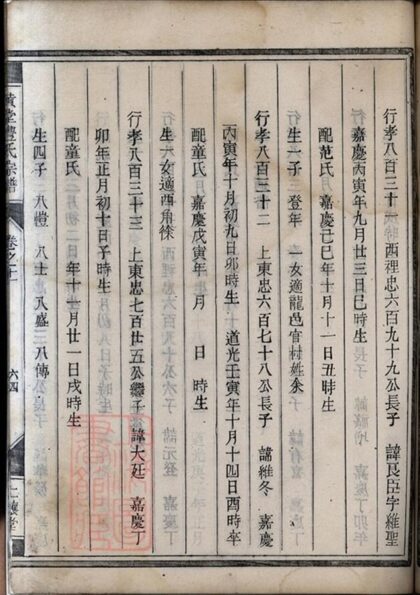 行孝八百三十一 西裡忠六百九十九公長子 諱良臣字維聖
嘉慶丙寅年九月廿三日巳時生
配范氏 嘉慶己巳年十月十一日丑時生
生一子 登年 一女適龍邑官村姓余
行孝八百三十二 上東忠六百七十八公長子 諱維冬 嘉慶
丙寅年十月初九日卯時生 道光壬寅年十月十四日酉時卒
配童氏 嘉慶戊寅年 月 日 時生
生一女適酉角徐
行孝八百三十三 上東忠七百廿五公繼子 諱大廷 嘉慶丁
卯年正月初十日子時生
配童氏 年十一月廿一日戌時生
生四子 八愷 八士 八盛 八傳
氏宗譜 卷之十一 六四